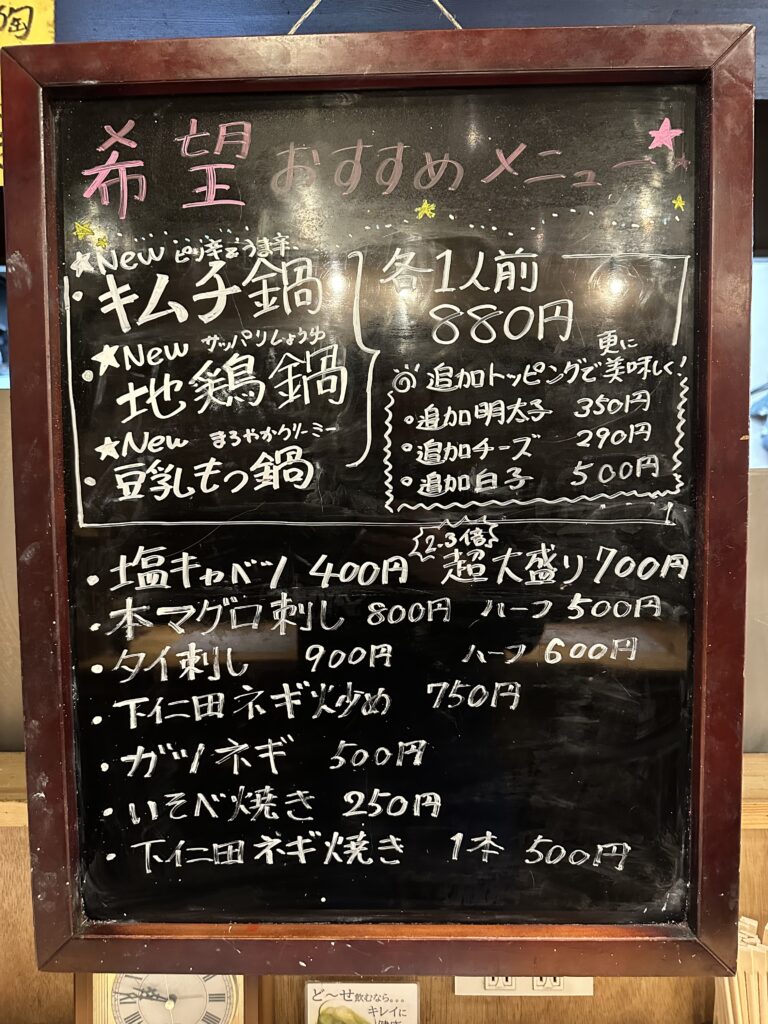 希望 おすすめメニュー
★New ピリ辛
キムチ鍋
★New サッパリしょうゆ
地鶏鍋
★New まろやかクリーミー
・豆乳もつ鍋
各1人前
880円
更に
追加トッピングで美味しく!
・追加明太子 350円
・追加チーズ 290円
・追加白子 500円
2~3倍
・塩キャベツ 400円 超大盛り 700円
・本マグロ刺し 800円 ハーフ 500円
・タイ刺し 900円 ハーフ 600円
・下仁田ネギ炒め 750円
・ガツネギ 500円
・いそべ焼き 250円
・下仁田ネギ焼き 1本 500円
ど〜せ飲むなら...
キレイに